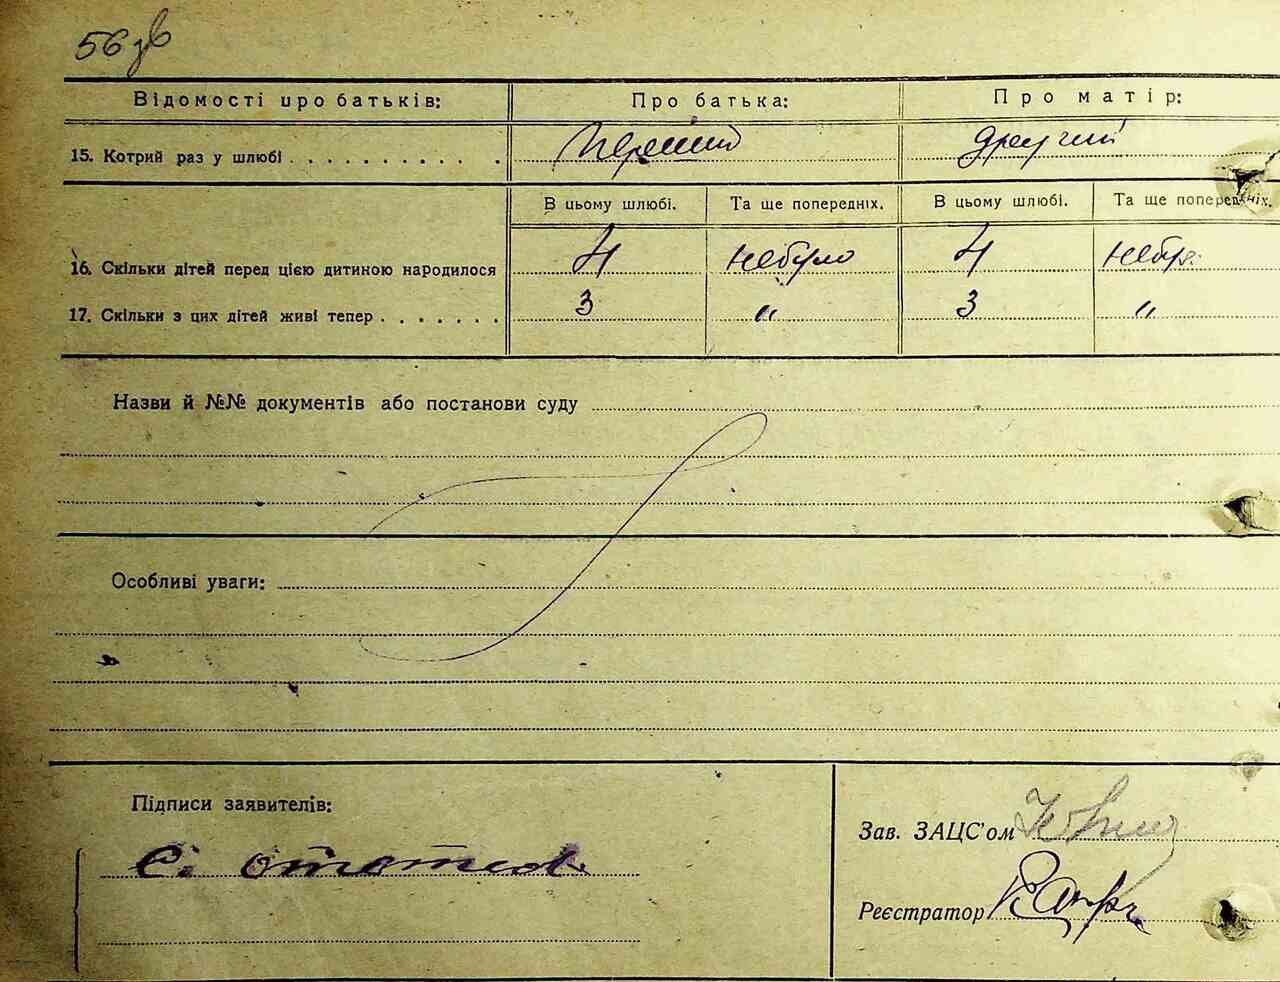 56 зв
Відомості про батьків: Про батька: Про матір:
15. Котрий раз у шлюбі . . . . . . . . . . . Перший другий
В цьому шлюбі. Та ще попередніх. В цьому шлюбі. Та ще попередніх.
16. Скільки дітей перед цією дитиною народилося 4 небуло 4
17. Скільки з цих дітей живі тепер . . . . . . . 3 〃 3 〃
Назви й №№ документів або постанови суду
Особливі уваги:
Підписи заявителів:
Зав. ЗАЦС'ом
Реєстратор